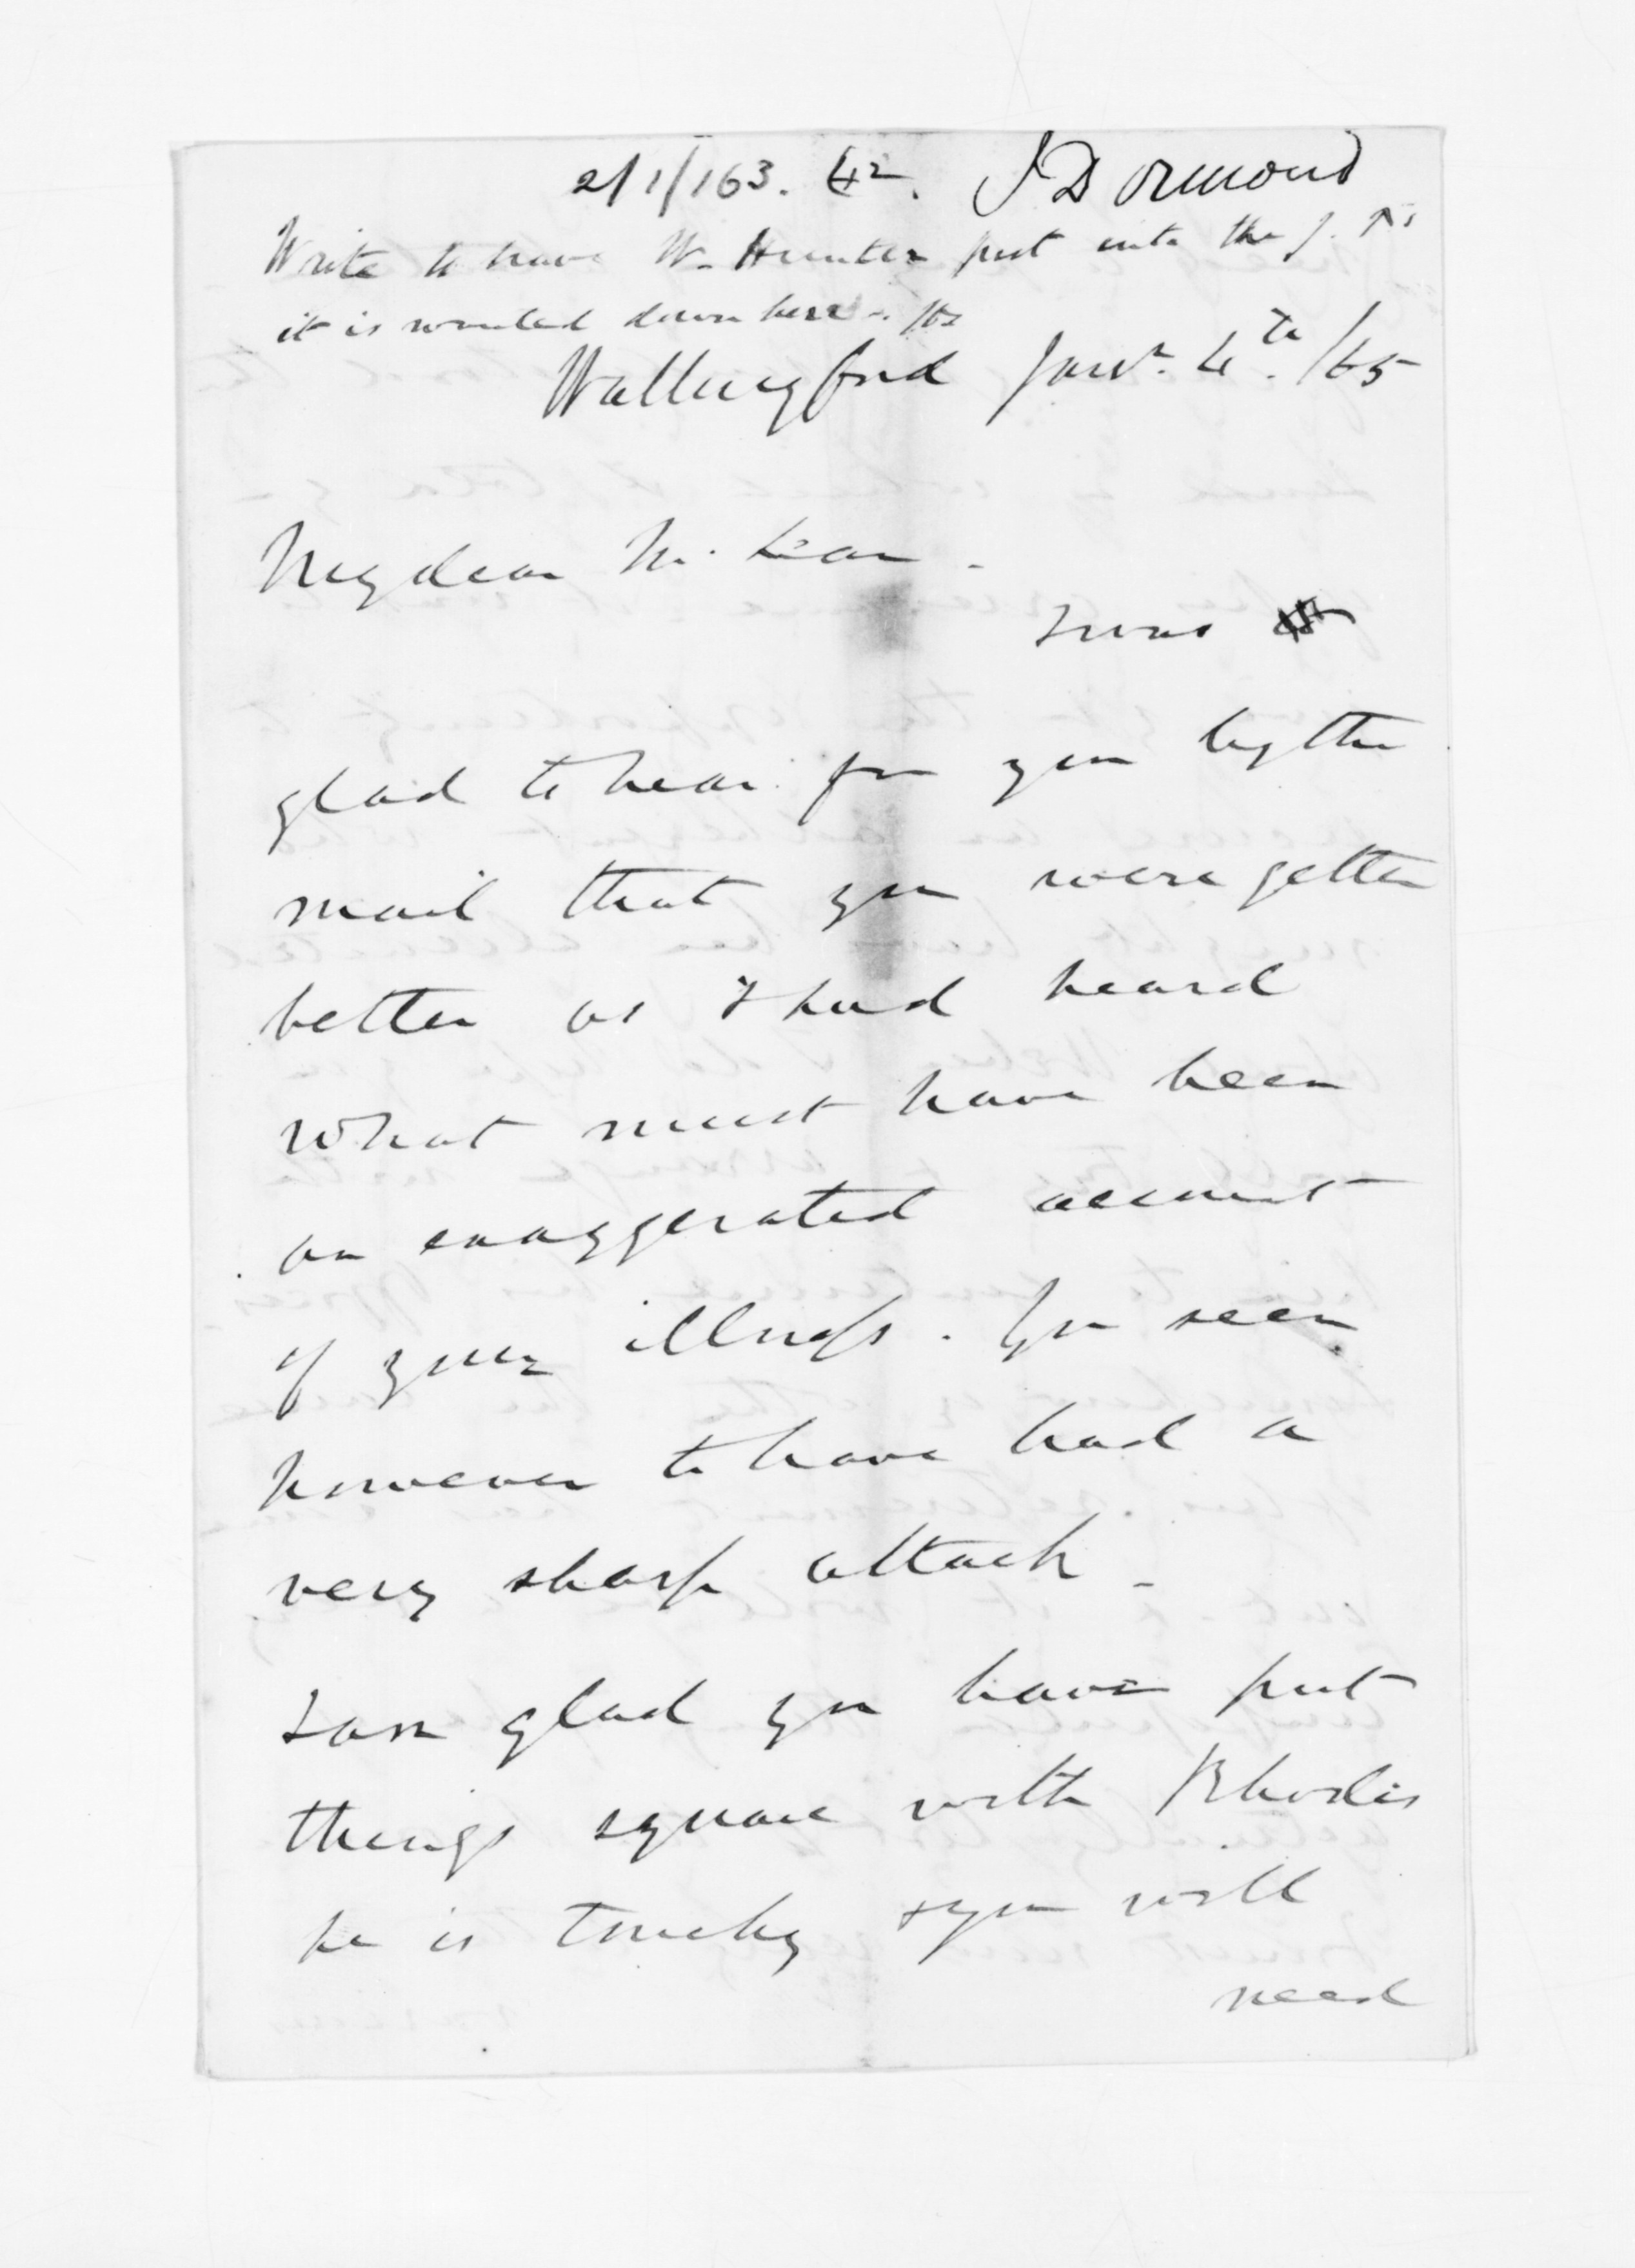 2/1/163. 42. J D Ormond
Write to have W. Hunter put into the J. Ps
it is wanted down here -
Wallingford Jany. 4th. /65
My dear McLean -
I was
glad to hear fm you by the
mail that you were gettn
better as I had heard
what must have been
an exaggerated account
of your illness. You seem
however to have had a
very sharp attack -
I am glad you have put
things square with Rhodes
he is touchy & you will
need